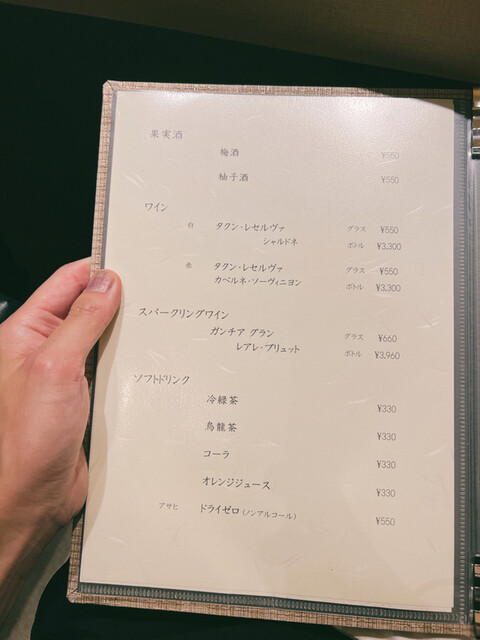 果実酒
梅酒 ¥550
柚子酒 ¥550
ワイン
白 タクン・レセルヴァ グラス ¥550
シャルドネ ボトル ¥3,300
赤 タクン・レセルヴァ グラス ¥550
カベルネ・ソーヴィニヨン ボトル ¥3,300
スパークリングワイン
ガンチア グラン グラス ¥660
レアレ・ブリュット ボトル ¥3,960
ソフトドリンク
冷緑茶 ¥330
烏龍茶 ¥330
コーラ ¥330
オレンジジュース ¥330
アサヒ ドライゼロ(ノンアルコール) ¥550